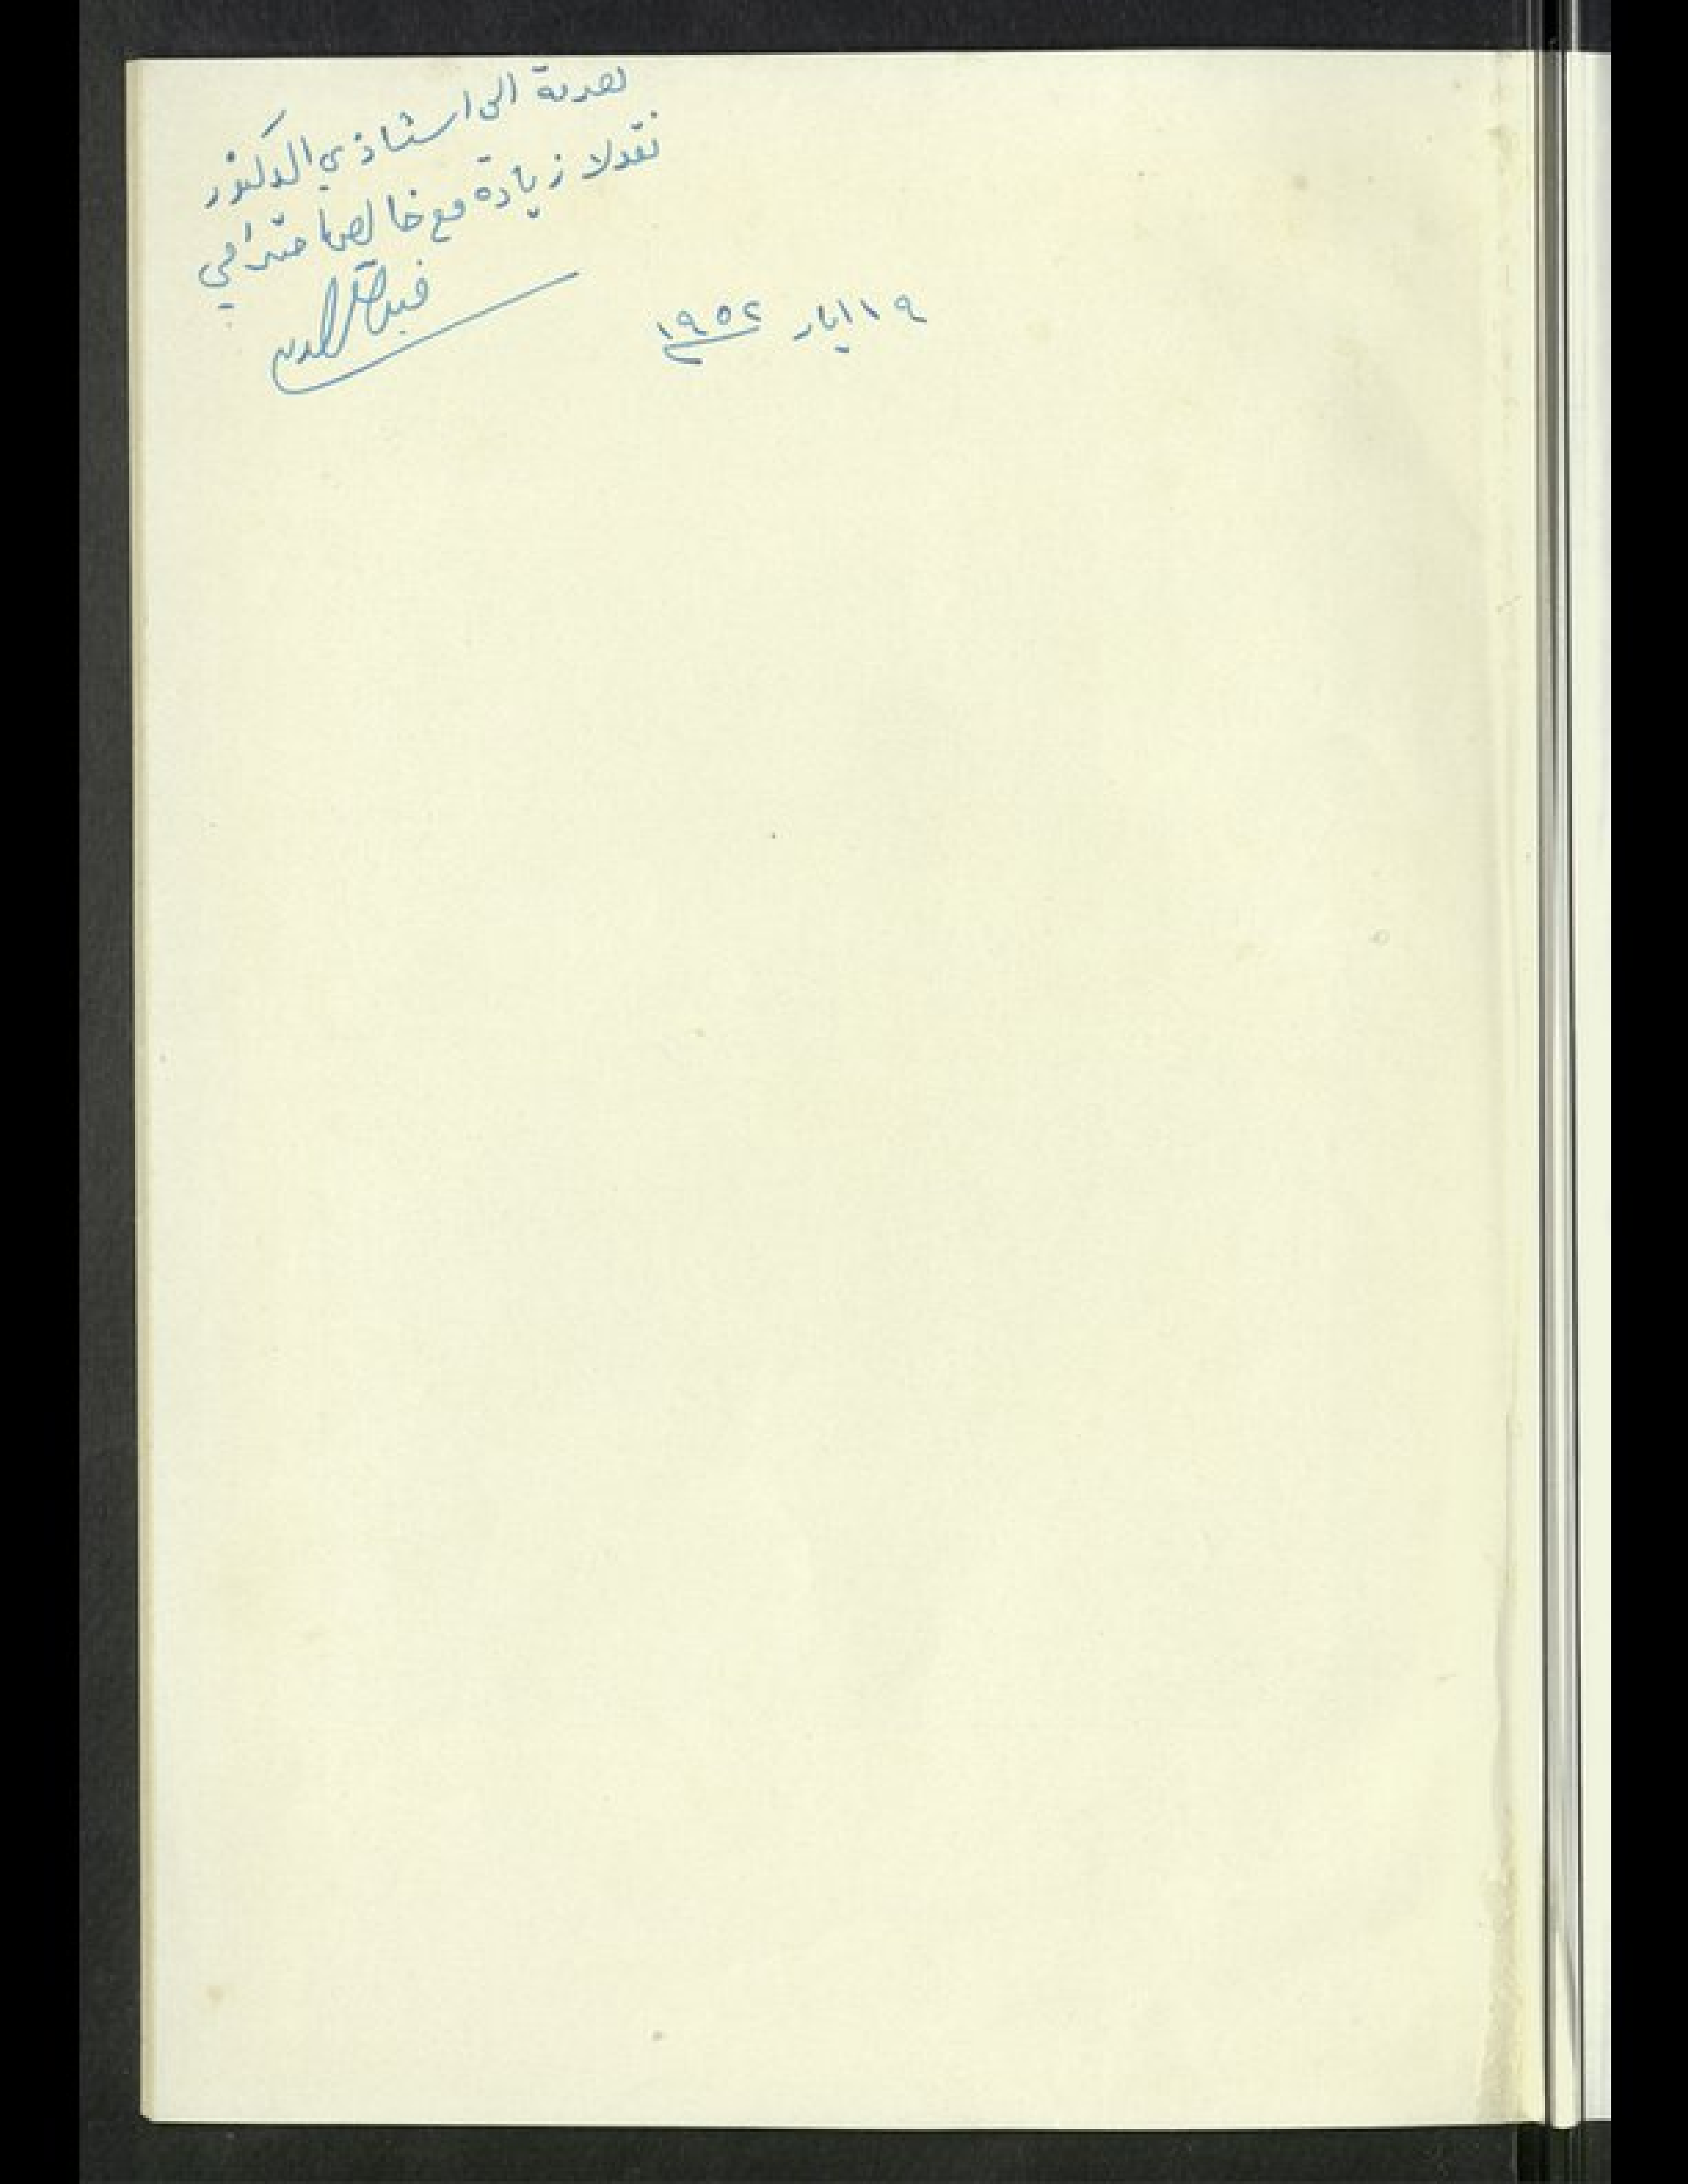 هدية الى استاذي الدكتور
نقولا زيادة مع خالص احترامي
١٩ ايار ١٩٥٢